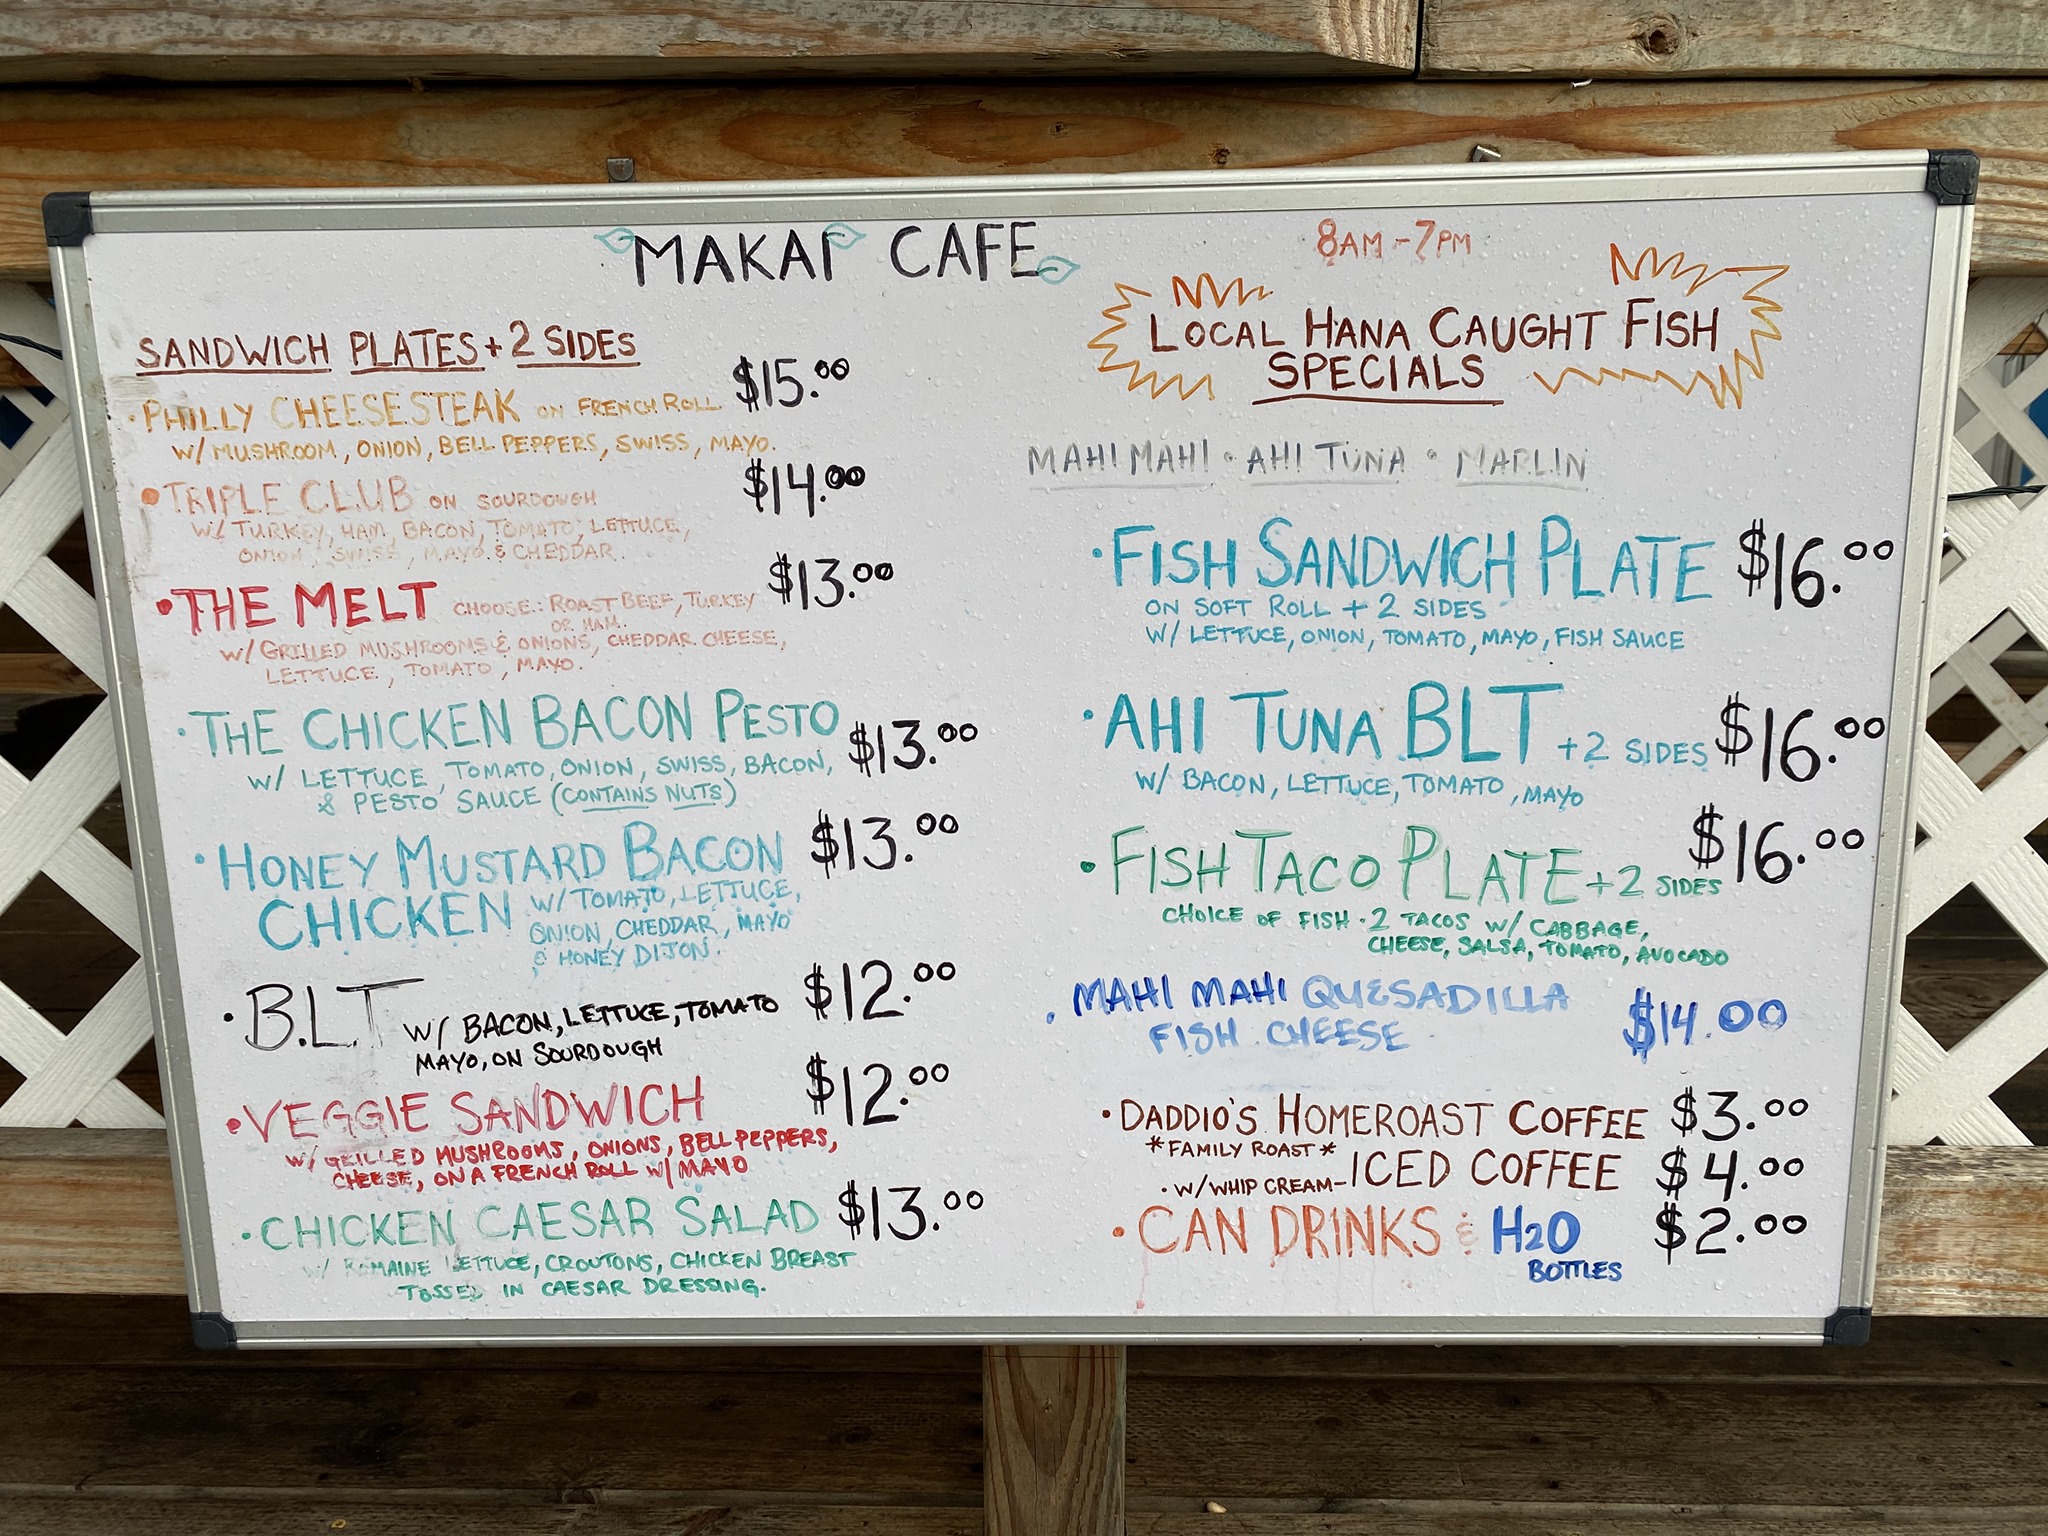 MAKAI CAFE
8AM-7PM
SANDWICH PLATES + 2 SIDES
· PHILLY CHEESESTEAK ON FRENCH ROLL $15.00
W/ MUSHROOM, ONION, BELL PEPPERS, SWISS, MAYO.
• TRIPLE CLUB ON SOURDOUGH $14.00
W/ TURKEY, HAM, BACON, TOMATO, LETTUCE,
ONION, SWISS, MAYO & CHEDDAR.
• THE MELT CHOOSE: ROAST BEEF, TURKEY $13.00
OR HAM.
W/ GRILLED MUSHROOMS & ONIONS, CHEDDAR CHEESE,
LETTUCE, TOMATO, MAYO.
· THE CHICKEN BACON PESTO $13.00
W/ LETTUCE, TOMATO, ONION, SWISS, BACON,
& PESTO SAUCE (CONTAINS NUTS)
· HONEY MUSTARD BACON $13.00
CHICKEN W/ TOMATO, LETTUCE,
ONION, CHEDDAR, MAYO
& HONEY DIJON.
· B.L.T W/ BACON, LETTUCE, TOMATO $12.00
MAYO, ON SOURDOUGH
• VEGGIE SANDWICH $12.00
W/ GRILLED MUSHROOMS, ONIONS, BELL PEPPERS,
CHEESE, ON A FRENCH ROLL W/ MAYO
· CHICKEN CAESAR SALAD $13.00
W/ ROMAINE LETTUCE, CROUTONS, CHICKEN BREAST
TOSSED IN CAESAR DRESSING.
LOCAL HANA CAUGHT FISH
SPECIALS
MAHI MAHI • AHI TUNA • MARLIN
· FISH SANDWICH PLATE $16.00
ON SOFT ROLL + 2 SIDES
W/ LETTUCE, ONION, TOMATO, MAYO, FISH SAUCE
· AHI TUNA BLT + 2 SIDES $16.00
W/ BACON, LETTUCE, TOMATO, MAYO
• FISH TACO PLATE + 2 SIDES $16.00
CHOICE OF FISH · 2 TACOS W/ CABBAGE,
CHEESE, SALSA, TOMATO, AVOCADO
· MAHI MAHI QUESADILLA $14.00
FISH CHEESE
· DADDIO'S HOMEROAST COFFEE $3.00
*FAMILY ROAST*
· W/ WHIP CREAM - ICED COFFEE $4.00
· CAN DRINKS & H2O $2.00
BOTTLES